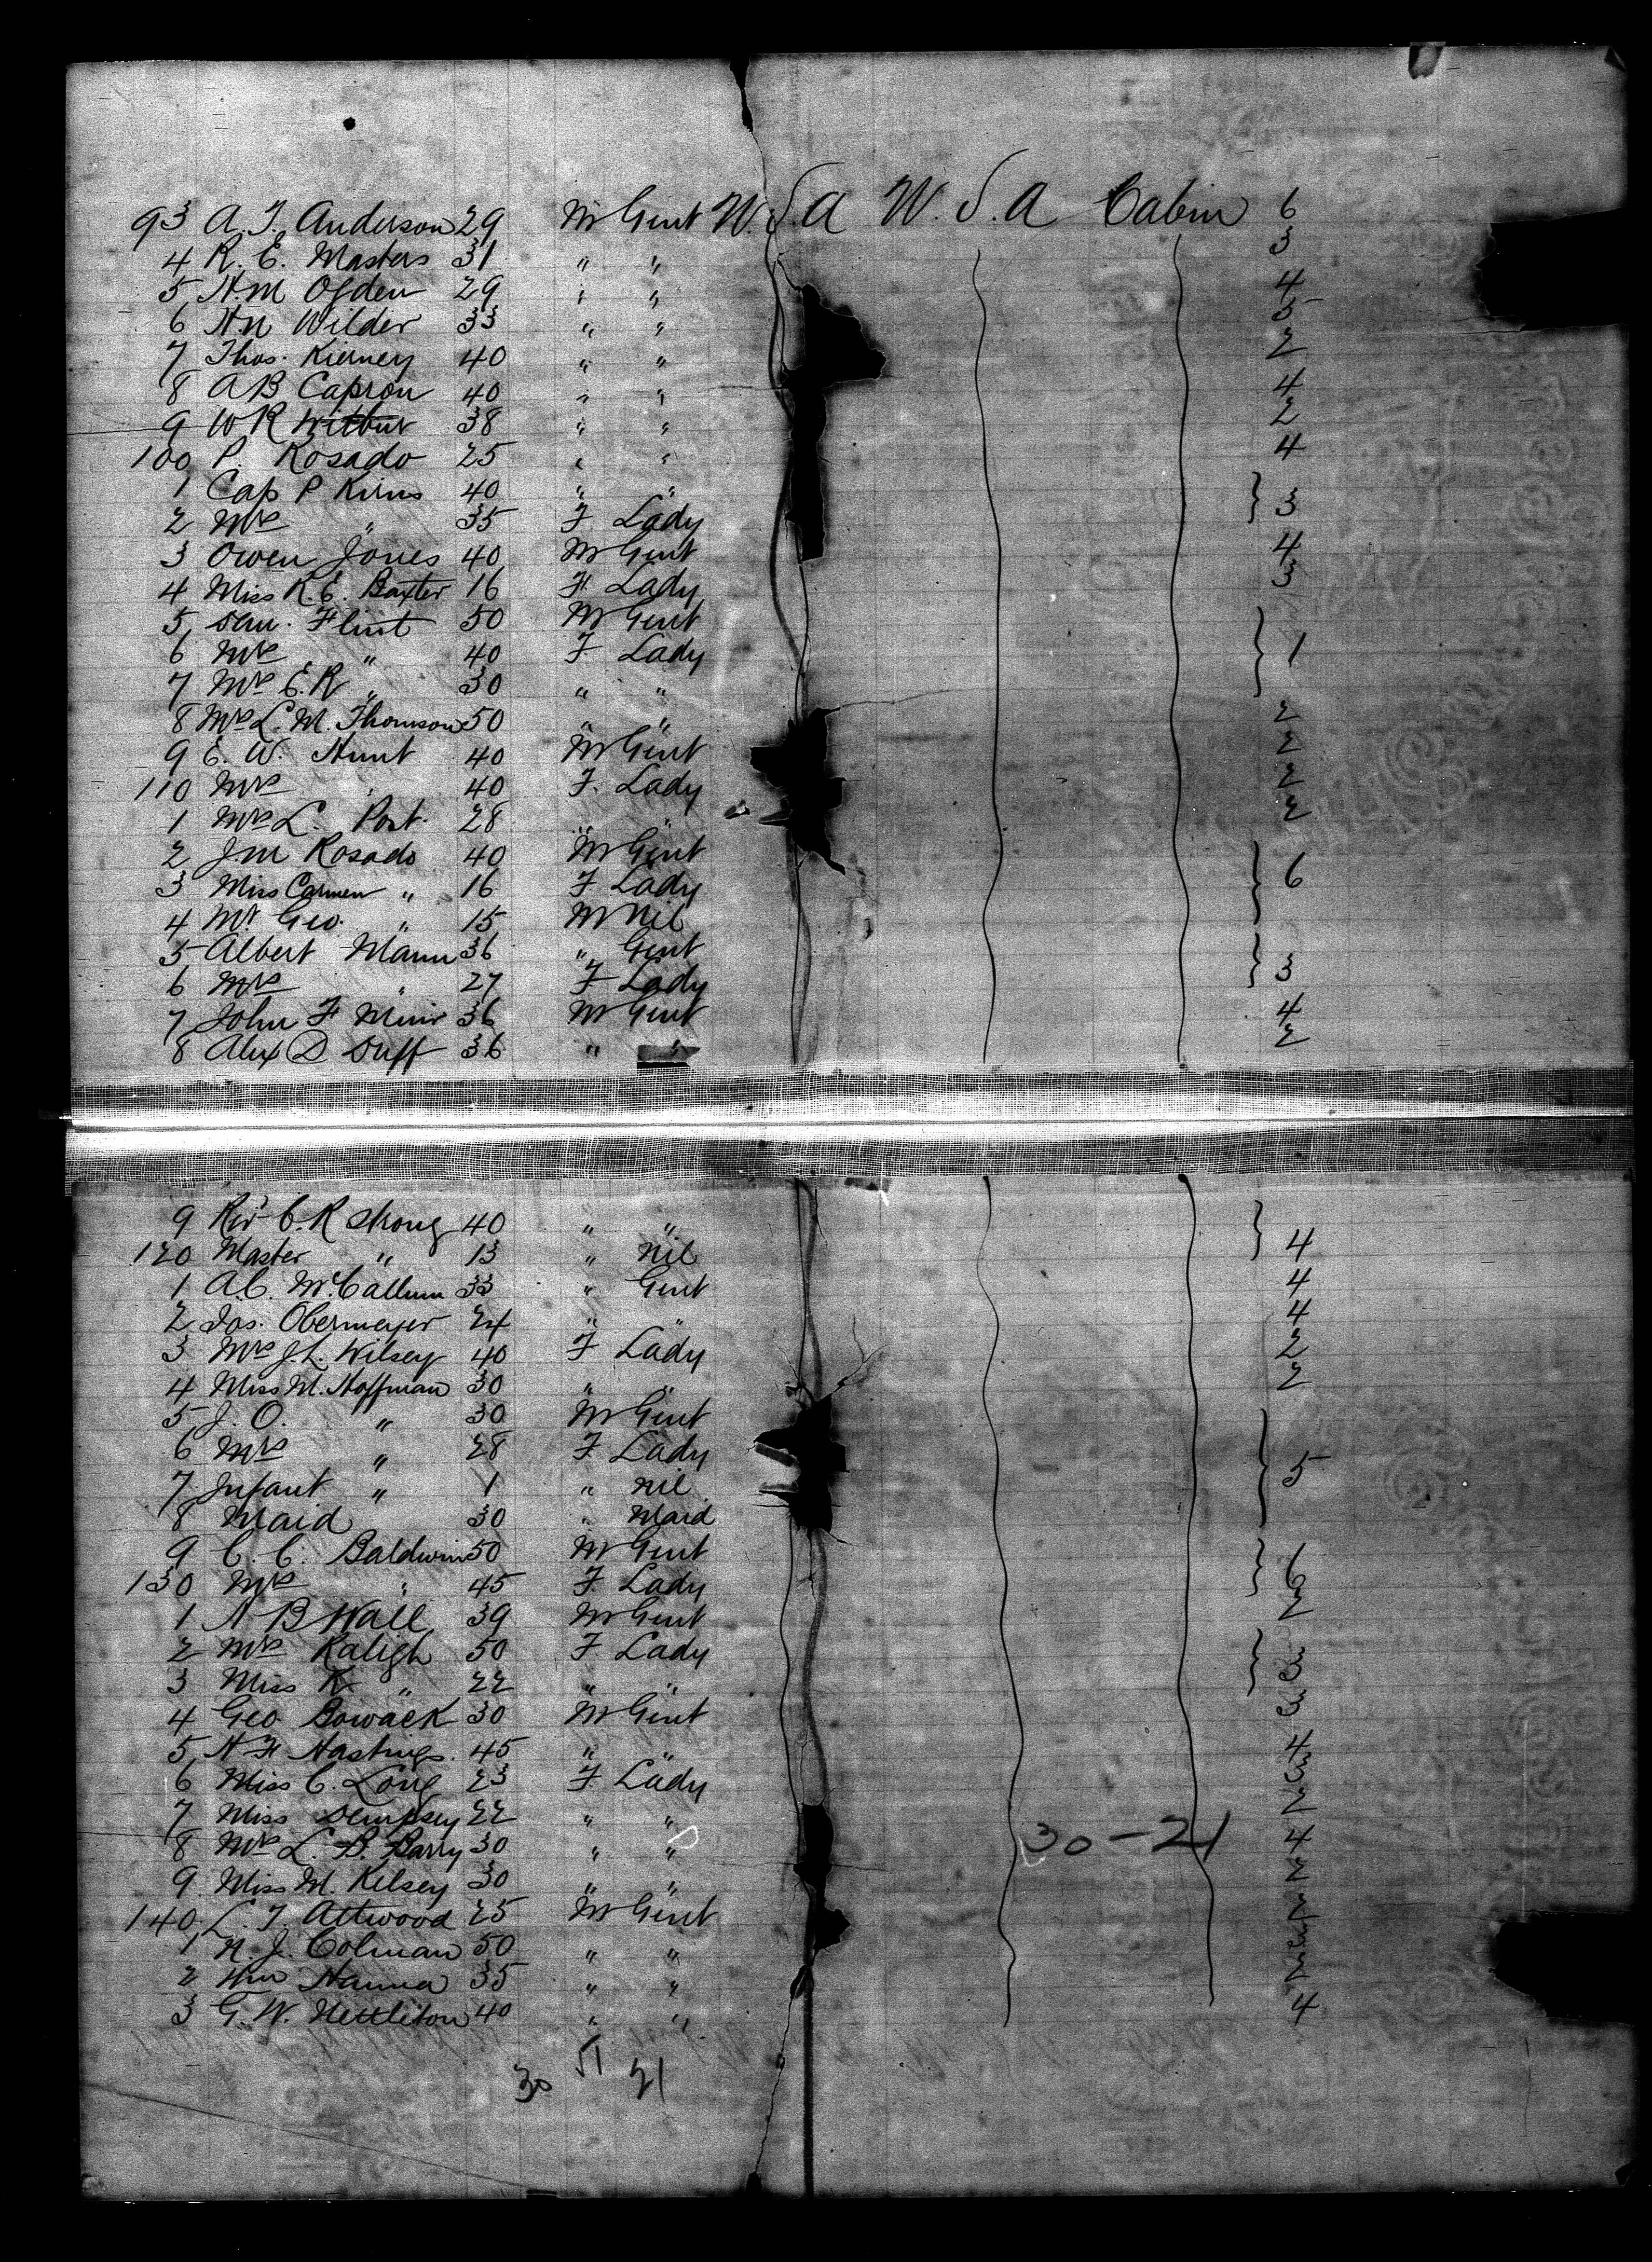 93 A. J. Anderson 29 M Gent U.S.A U.S.A Cabin 6
4 R. E. Masters 31 " " 3
5 H.M Ogden 29 " " 4
6 H.N Wilder 33 " " 5
7 Thos. Kierney 40 " " 2
8 A B Capron 40 " " 4
9 W R Wilbur 38 " " 2
100 P. Rosado 25 " " 4
1 Cap P Kirns 40 " " } 3
2 Mrs " 35 F Lady
3 Owen Jones 40 M Gent 4
4 Miss R. E. Baxter 16 F. Lady 3
5 Sam. Flint 50 M Gent
6 Mrs " 40 F Lady } 1
7 Mrs E.R " 30 " "
8 Mrs L. M. Thomson 50 " " 2
9 E. W. Hunt 40 M Gent 2
110 Mrs " 40 F. Lady 2
1 Mrs L. Post. 28 " " 2
2 J M Rosado 40 M Gent } 6
3 Miss Carmen " 16 F Lady
4 Mr Geo. " 15 M Nil
5 Albert Mann 36 " Gent } 3
6 Mrs " 27 F Lady
7 John F Muir 36 M Gent 4
8 Alex D Duff 36 " " 2
9 Rev C. R Strong 40 " " }
120 Master " 13 " nil 4
1 A.C. McCallum 33 " Gent 4
2 Jos. Obermeyer 24 " " 4
3 Mrs J. L. Wilsey 40 F Lady 2
4 Miss M. Hoffman 30 " " 2
5 J. O. " 30 M Gent
6 Mrs " 28 F Lady } 5
7 Infant " 1 " nil
8 Maid 30 " Maid
9 C. C. Baldwin 50 M Gent } 6
130 Mrs " 45 F. Lady
1 A B Wall 39 M Gent 2
2 Mrs Raligh 50 F Lady } 3
3 Miss K " 22 " "
4 Geo Bowack 30 M Gent 3
5 H F Hastings. 45 " " 4
6 Miss C. Long 23 F. Lady 3
7 Miss Dempsey 22 " " 2
8 Mrs L. B. Barry 30 " " 30-21 4
9 Miss M. Kelsey 30 " " 2
140. L. J. Attwood 25 M Gent 2
1 N. J. Colman 50 " "
2 Wm Hanna 35 " " 2
3 G. W. Nettleton 40 " " 4
51
30 21